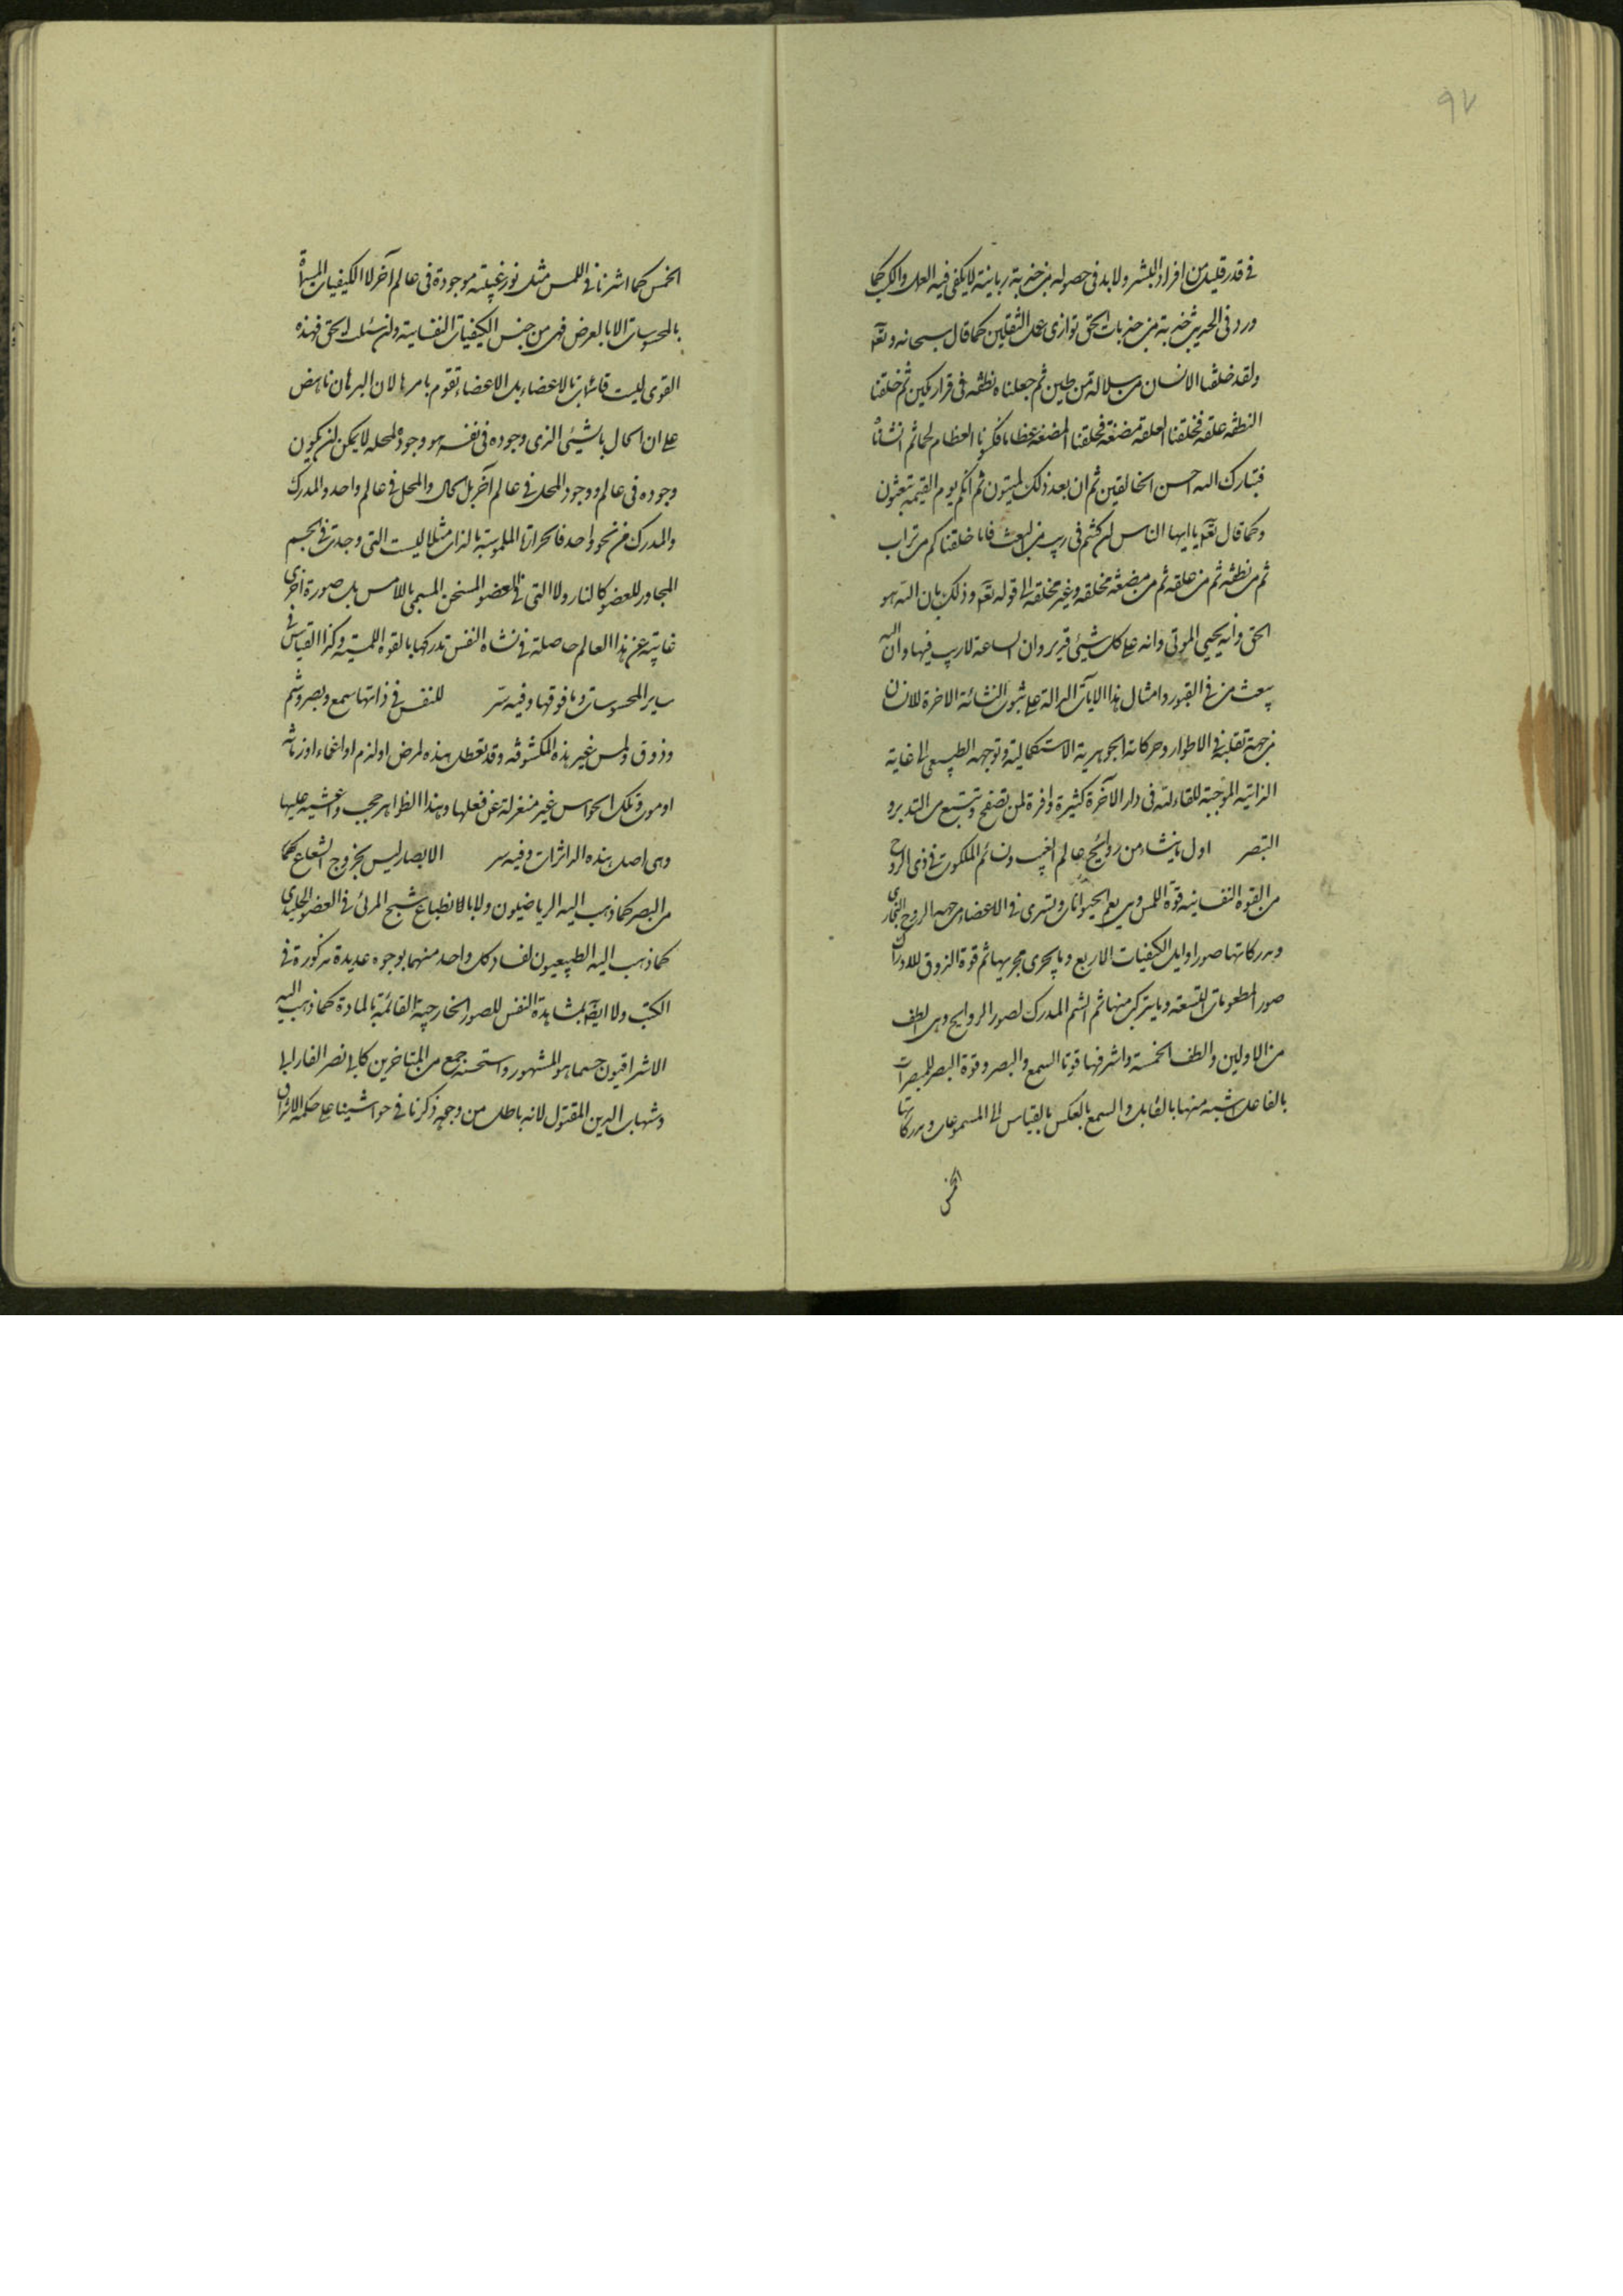 ٩٧
في قدر قليل من افراد البشر ولا بد في حصوله من جذبة ربانية لا يكفي فيه العمل والكسب كما
ورد في الحديث جذبة من جذبات الحق توازي عمل الثقلين كما قال سبحانه وتعه
ولقد خلقنا الانسان من سلالة من طين ثم جعلناه نطفه في قرار مكين ثم خلقنا
النطفه علقه فخلقنا العلقه مضغة فخلقنا المضغه عظاما فكسونا العظام لحما ثم انشاناه
فتبارك الله احسن الخالقين ثم ان بعد ذلك لميتون ثم انكم يوم القيمه تبعثون
وكما قال تعه يا ايها الناس ان كنتم في ريب من البعث فانا خلقناكم من تراب
ثم من نطفه ثم من علقه ثم من مضغه مخلقه وغير مخلقه الى قوله تعه وذلك بان الله هو
الحق وانه يحيي الموتى وانه على كل شيئ قدير وان الساعة لا ريب فيها وان الله
يبعث من في القبور وامثال هذا الايات الدالة على ثبوت النشائة الاخرة للانسان
من جهة تقلبه في الاطوار وحركاته الجوهرية الاستكمالية وتوجهه الطبيعي الى غاية
الذاتيه الموجبه للقاء الله في دار الآخرة كثيرة وافرة لمن تصفح وتتبع من التدبر و
التبصر اول ما ينشاء من روائح عالم الغيب ونسائم الملكوت في ذي الروح
من القوة النفسانيه قوة اللمس وهي يعم الحيوانات ويسري في الاعضاء من جهه الروح البخاري
ومدركاتها صور اوايل الكيفيات الاربع وما يجري مجريها ثم قوة الذوق للادراك
صور المطعومات التسعه وما يتركب منها ثم الشم المدرك لصور الروايح وهي الطف
من الاولين والطف الخمسة واشرفها قوتا السمع والبصر وقوة البصر للمبصرات
بالفاعل اشبه منها بالقابل والسمع بالعكس بالقياس الى المسموعات ومدركاتها
الخمس
الخمس كما اشرنا في اللمس مثل نورغيبته موجودة في عالم آخر لا الكيفيات المسماة
بالمحسوسات الا بالعرض فهي من جنس الكيفيات النفسانية ولئن سئلت الحق فهذه
القوى ليست قائمات بالاعضاء بل الاعضاء تقوم بامرها لان البرهان ناهض
على ان الحال بالشيئ الذي وجوده في نفسه هو وجوده لمحله لا يمكن ان يكون
وجوده في عالم ووجود المحل في عالم آخر بل الحال والمحل في عالم واحد والمدرك
والمدرك من نحو واحد فالحرارة الملموسة بالذات مثلا ليست التي وجدت في الجسم
المجاور للعضو كالنار ولا التي في العضو المسخن المسمى باللامس بل صورة اخرى
غايبة عن هذا العالم حاصلة في نشاه النفس تدركها بالقوه اللمسية وكذا القياس في
ساير المحسوسات وما فوقها وفيه سر للنفس في ذاتها سمع وبصر وشم
وذوق ولمس غير هذه المكشوفه وقد تعطل هذه لمرض او نوم او اغماء او زمانه
او موت وتلك الحواس غير منعزلة عن فعلها وهذا الظاهر حجب واغشيه عليها
وهي اصل هذه الداثرات وفيه سر الابصار ليس بخروج الشعاع كما
من البصر كما ذهب اليه الرياضيون ولا بالانطباع شبح المرئى في العضو الجليدى
كما ذهب اليه الطبيعيون لفساد كل واحد منهما بوجوه عديدة مذكورة في
الكتب ولا ايضا بمشاهدة النفس للصور الخارجية القائمة بالمادة كما ذهب اليه
الاشراقيون حسبما هو المشهور واستحسنه جمع من المتاخرين كابي نصر الفارابي
وشهاب الدين المقتول لانه باطل من وجهه ذكرنا في حواشينا على حكمة الاشراق